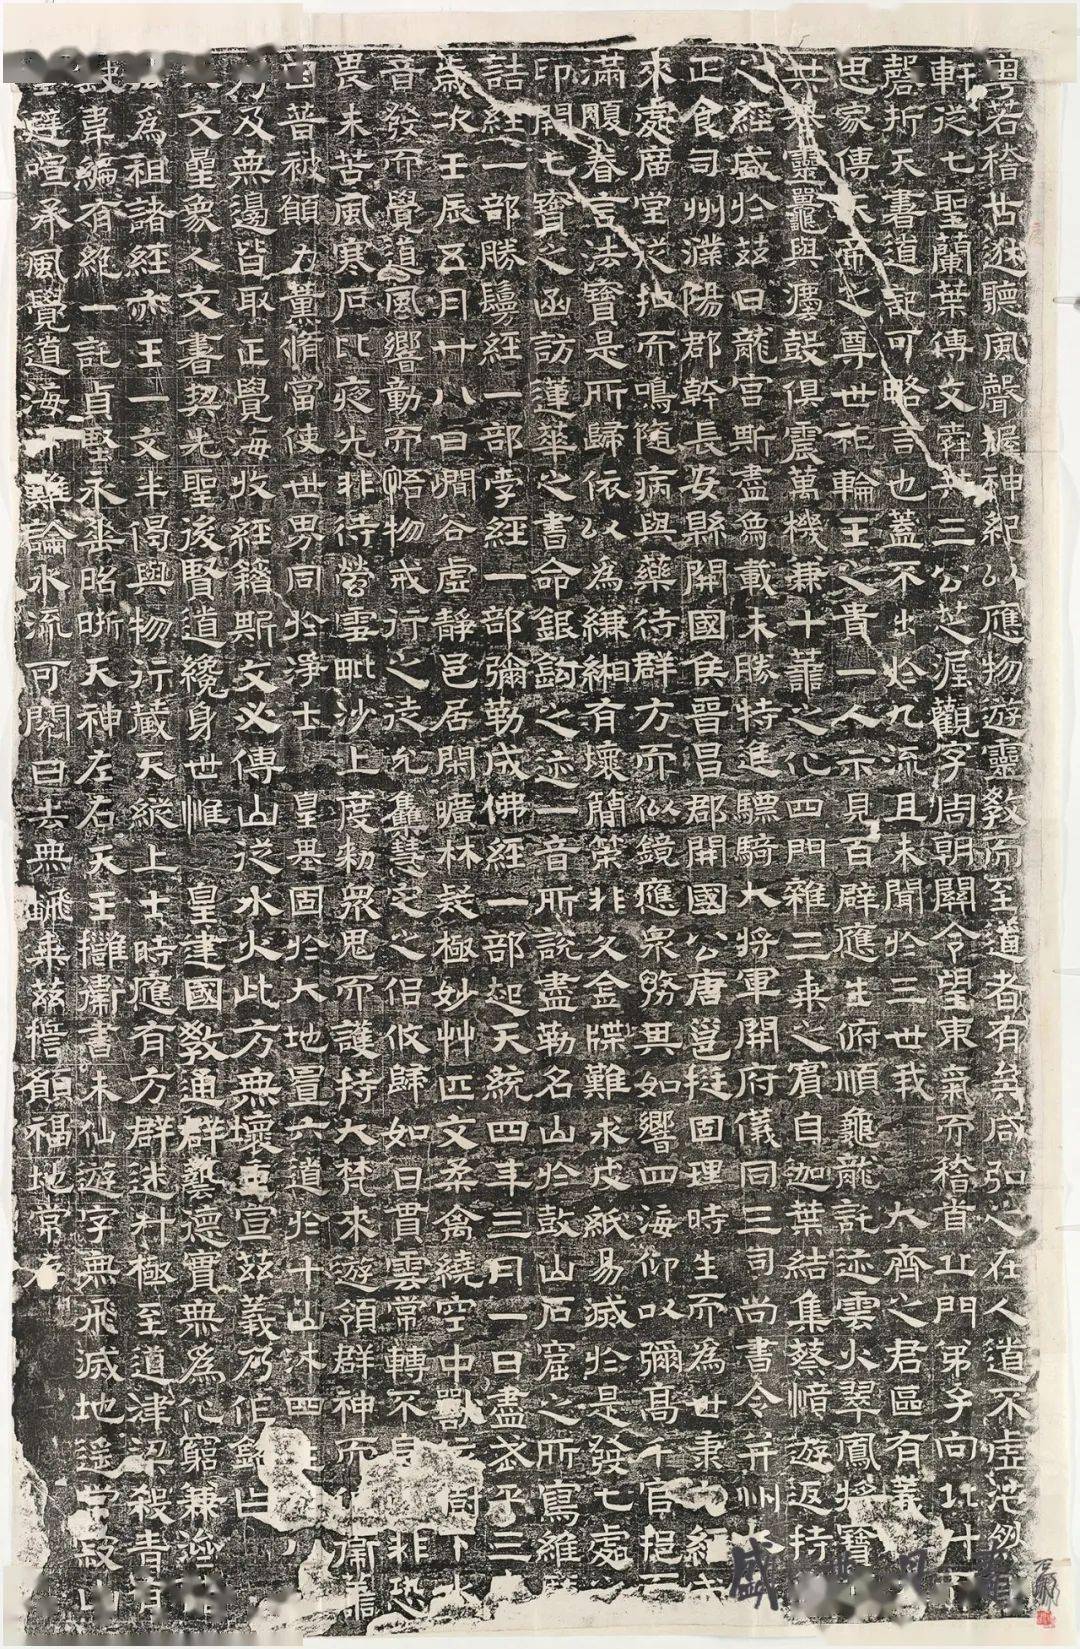 粵若稽古遐聽風聲握神紀以應物遊靈教而至道者有矣咸弘之在人道不虛
軒從七聖蘭葉傳文舜 三公芝泥觀字周朝關令望東氣而稽首丘門弟子向北斗
磬折天書道記可略言也蓋不出於九流且未聞於三世我大齊之君區有義
皇家傳天帝之尊世祚輪王之貴一人示見百辟應生俯順龜龍託迹雲火翠鳳將寶
共 靈鼉與鷹鼓俱震萬機兼十善之心四門雜三乘之賓自迦葉結集蔡愔遊返持
之經盛於茲日龍宮斯盡鳥載未勝特進驃騎大將軍開府儀同三司尚書令并州大
正食司州濮陽郡幹長安縣開國侯晉昌郡開國公唐邕挺固理時生而為世秉文經
來處廣堂衣 而鳴隨病與藥待群方而似鏡應眾務其如響四海仰以彌高千官挹
滿願眷言法寶是所歸依以為縑緗有壞簡策非久金牒難求皮紙易滅於是發七處
印開七寶之函訪蓮華之書命銀鉤之迹一音所說盡勒名山於鼓山石窟之所寫維摩
詰經一部勝鬘經一部孛經一部彌勒成佛經一部起天統四年三月一日盡武平三
歲次壬辰五月廿八日㵎谷虛靜邑居閑曠林疑極妙草匹文柔禽繞空中獸 樹下水
音發而覺道風響動而悟物戒行之徒允集慧定之侶攸歸如日貫雲常轉不息 非恐
畏末苦風寒石比夜光非待瑩雪毗沙上度勑眾鬼而護持大梵來遊領群神而作衛善
因普被願力薰脩當使世界同於淨土皇基固於大地置六道於十山沐四生
乃及無邊皆取正覺海收經籍斯文必傳山從水火此方無壞重宣茲義乃作銘曰
天文聖象人文書契先聖後賢道纏身世惟皇建國教通群藝德實無為化窮兼濟
為祖諸經亦王一文半偈與物行藏天縱上士時應有方群迷斗極至道津梁殺青有
缺韋編有絕一託貞堅永垂昭晰天神左右天王擁衛書未仙遊字無飛滅地遙常寂山
避喧承風覺道海 難論水流可閱日去無飜乘茲誓願福地常存